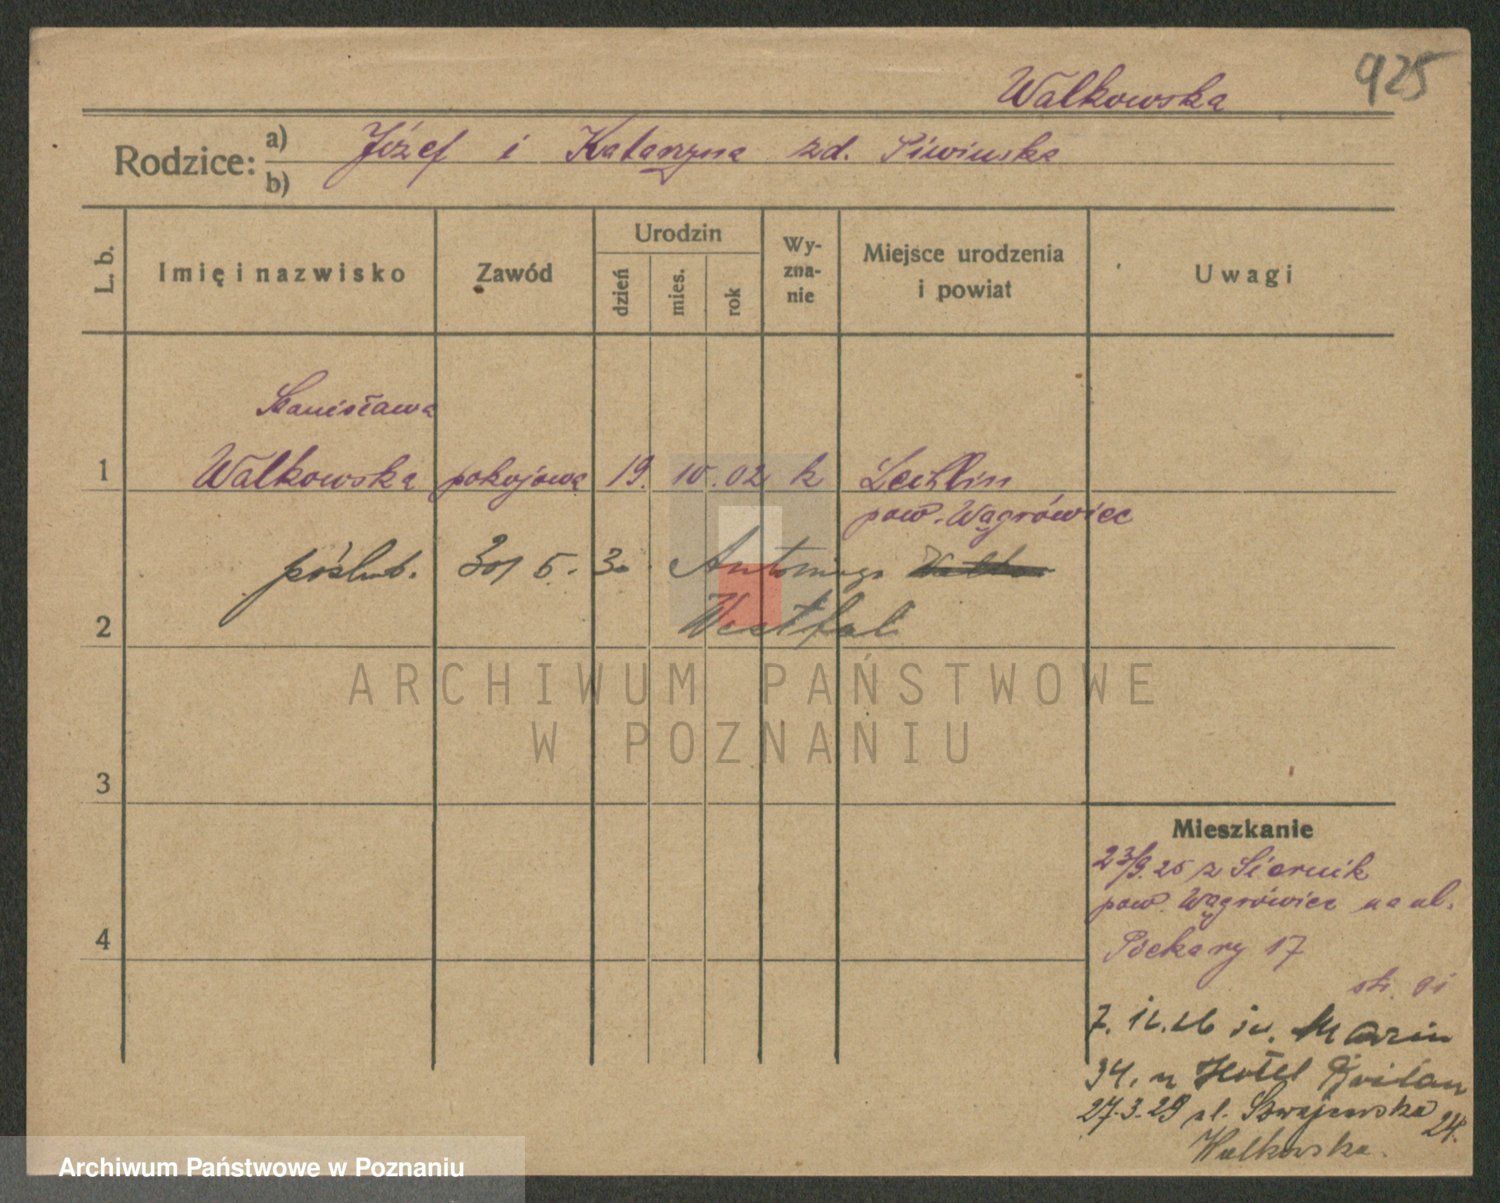 925
Walkowska
Rodzice: a) b)
Józef i Katarzyna zd. Siwinska
L. b.
Imię i nazwisko
Zawód
Urodzin
dzień
mies.
rok
Wy-
zna-
nie
Miejsce urodzenia
i powiat
Uwagi
Stanisława
1 Walkowska pokojowa 19. 10. 02 k Lechlin
pow. Wągrówiec
poślub. 30/5. 30 Antoniego
2 Westfal
ARCHIWUM PAŃSTWOWE
W POZNANIU
3
Mieszkanie
23/9.25 z Siernik
pow. Wągrówiec na ul.
4
Piekary 17
7. 12. 26 św. Marcin
34. n Hotel
27.3.29 ul. Szwajcarska 24.
Walkowska.
Archiwum Państwowe w Poznaniu